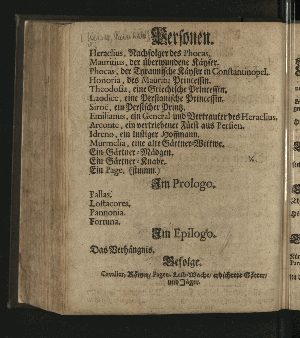 Personen.
Heraclius, Nachfolger des Phocas.
Mauritius, der überwundene Käyser.
Phocas, der Tyrannische Käyser in Constantinopel.
Honoria, des Mauritii Princessin.
Theodosia, eine Griechische Princessin.
Laodice, eine Persianische Princessin.
Siroë, ein Persischer Printz.
Emilianus, ein General und Vertrauter des Heraclius.
Arconte, ein vertriebener Fürst aus Persien.
Idreno, ein lustiger Hoffmann.
Murmelia, eine alte Gärtner-Wittwe.
Ein Gärtner-Mädgen.
Ein Gärtner-Knabe.
Ein Page. (stumm.)
Im Prologo.
Pallas.
Pannonia.
Fortuna.
Im Epilogo.
Das Verhängnis.
Gefolge.
Cavalier, Pagen, Leib-Wache,
und Jäger.